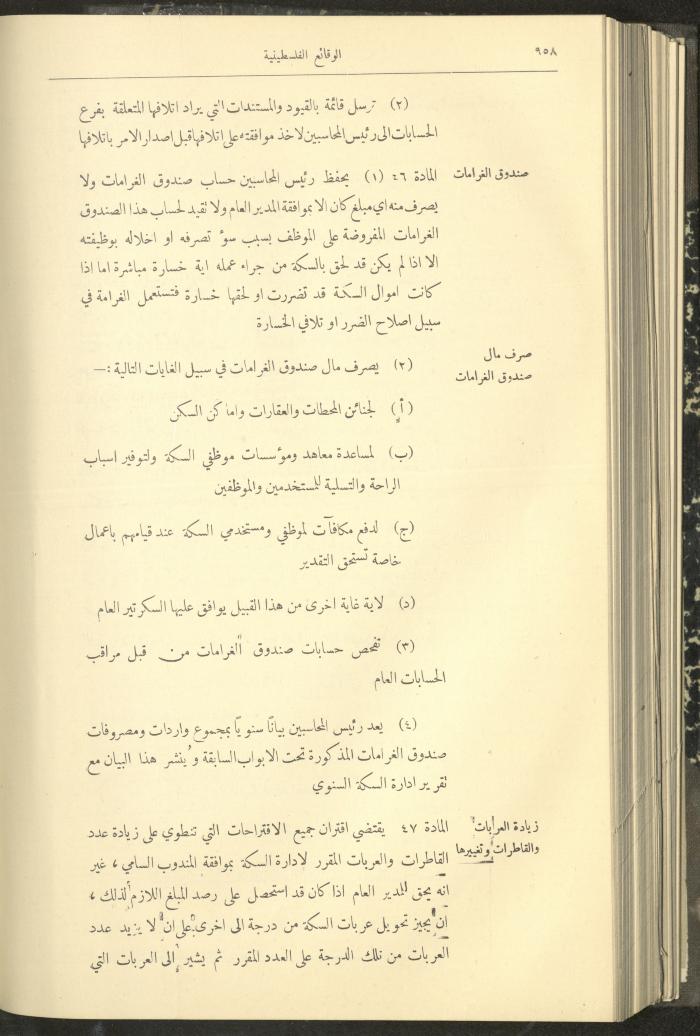 ٩٥٨
الوقائع الفلسطينية
(٢) ترسل قائمة بالقيود والمستندات التي يراد اتلافها المتعلقة بفرع
الحسابات الى رئيس المحاسبين لاخذ موافقته على اتلافها قبل اصدار الامر باتلافها
صندوق الغرامات
المادة ٤٦ (١) يحفظ رئيس المحاسبين حساب صندوق الغرامات ولا
يصرف منه اي مبلغ كان الا بموافقة المدير العام ولا تقيد لحساب هذا الصندوق
الغرامات المفروضة على الموظف بسبب سوء تصرفه او اخلاله بوظيفته
الا اذا لم يكن قد لحق بالسكة من جراء عمله اية خسارة مباشرة اما اذا
كانت اموال السكة قد تضررت او لحقها خسارة فتستعمل الغرامة في
سبيل اصلاح الضرر او تلافي الخسارة
صرف مال
صندوق الغرامات
(٢) يصرف مال صندوق الغرامات في سبيل الغايات التالية :—
(أ) لجنائن المحطات والعقارات واماكن السكن
(ب) لمساعدة معاهد ومؤسسات موظفي السكة ولتوفير اسباب
الراحة والتسلية للمستخدمين والموظفين
(ج) لدفع مكافآت لموظفي ومستخدمي السكة عند قيامهم باعمال
خاصة تستحق التقدير
(د) لاية غاية اخرى من هذا القبيل يوافق عليها السكرتير العام
(٣) تفحص حسابات صندوق الغرامات من قبل مراقب
الحسابات العام
(٤) يعد رئيس المحاسبين بيانًا سنويًا بمجموع واردات ومصروفات
صندوق الغرامات المذكورة تحت الابواب السابقة ويُنشر هذا البيان مع
تقرير ادارة السكة السنوي
زيادة العرابات
والقاطرات وتغييرها
المادة ٤٧ يقتضي اقتران جميع الاقتراحات التي تنطوي على زيادة عدد
القاطرات والعربات المقرر لادارة السكة بموافقة المندوب السامي ، غير
انه يحق للمدير العام اذا كان قد استحصل على رصد المبلغ اللازم لذلك ،
ان يجيز تحويل عربات السكة من درجة الى اخرى على ان لا يزيد عدد
العربات من تلك الدرجة على العدد المقرر ثم يشير الى العربات التي